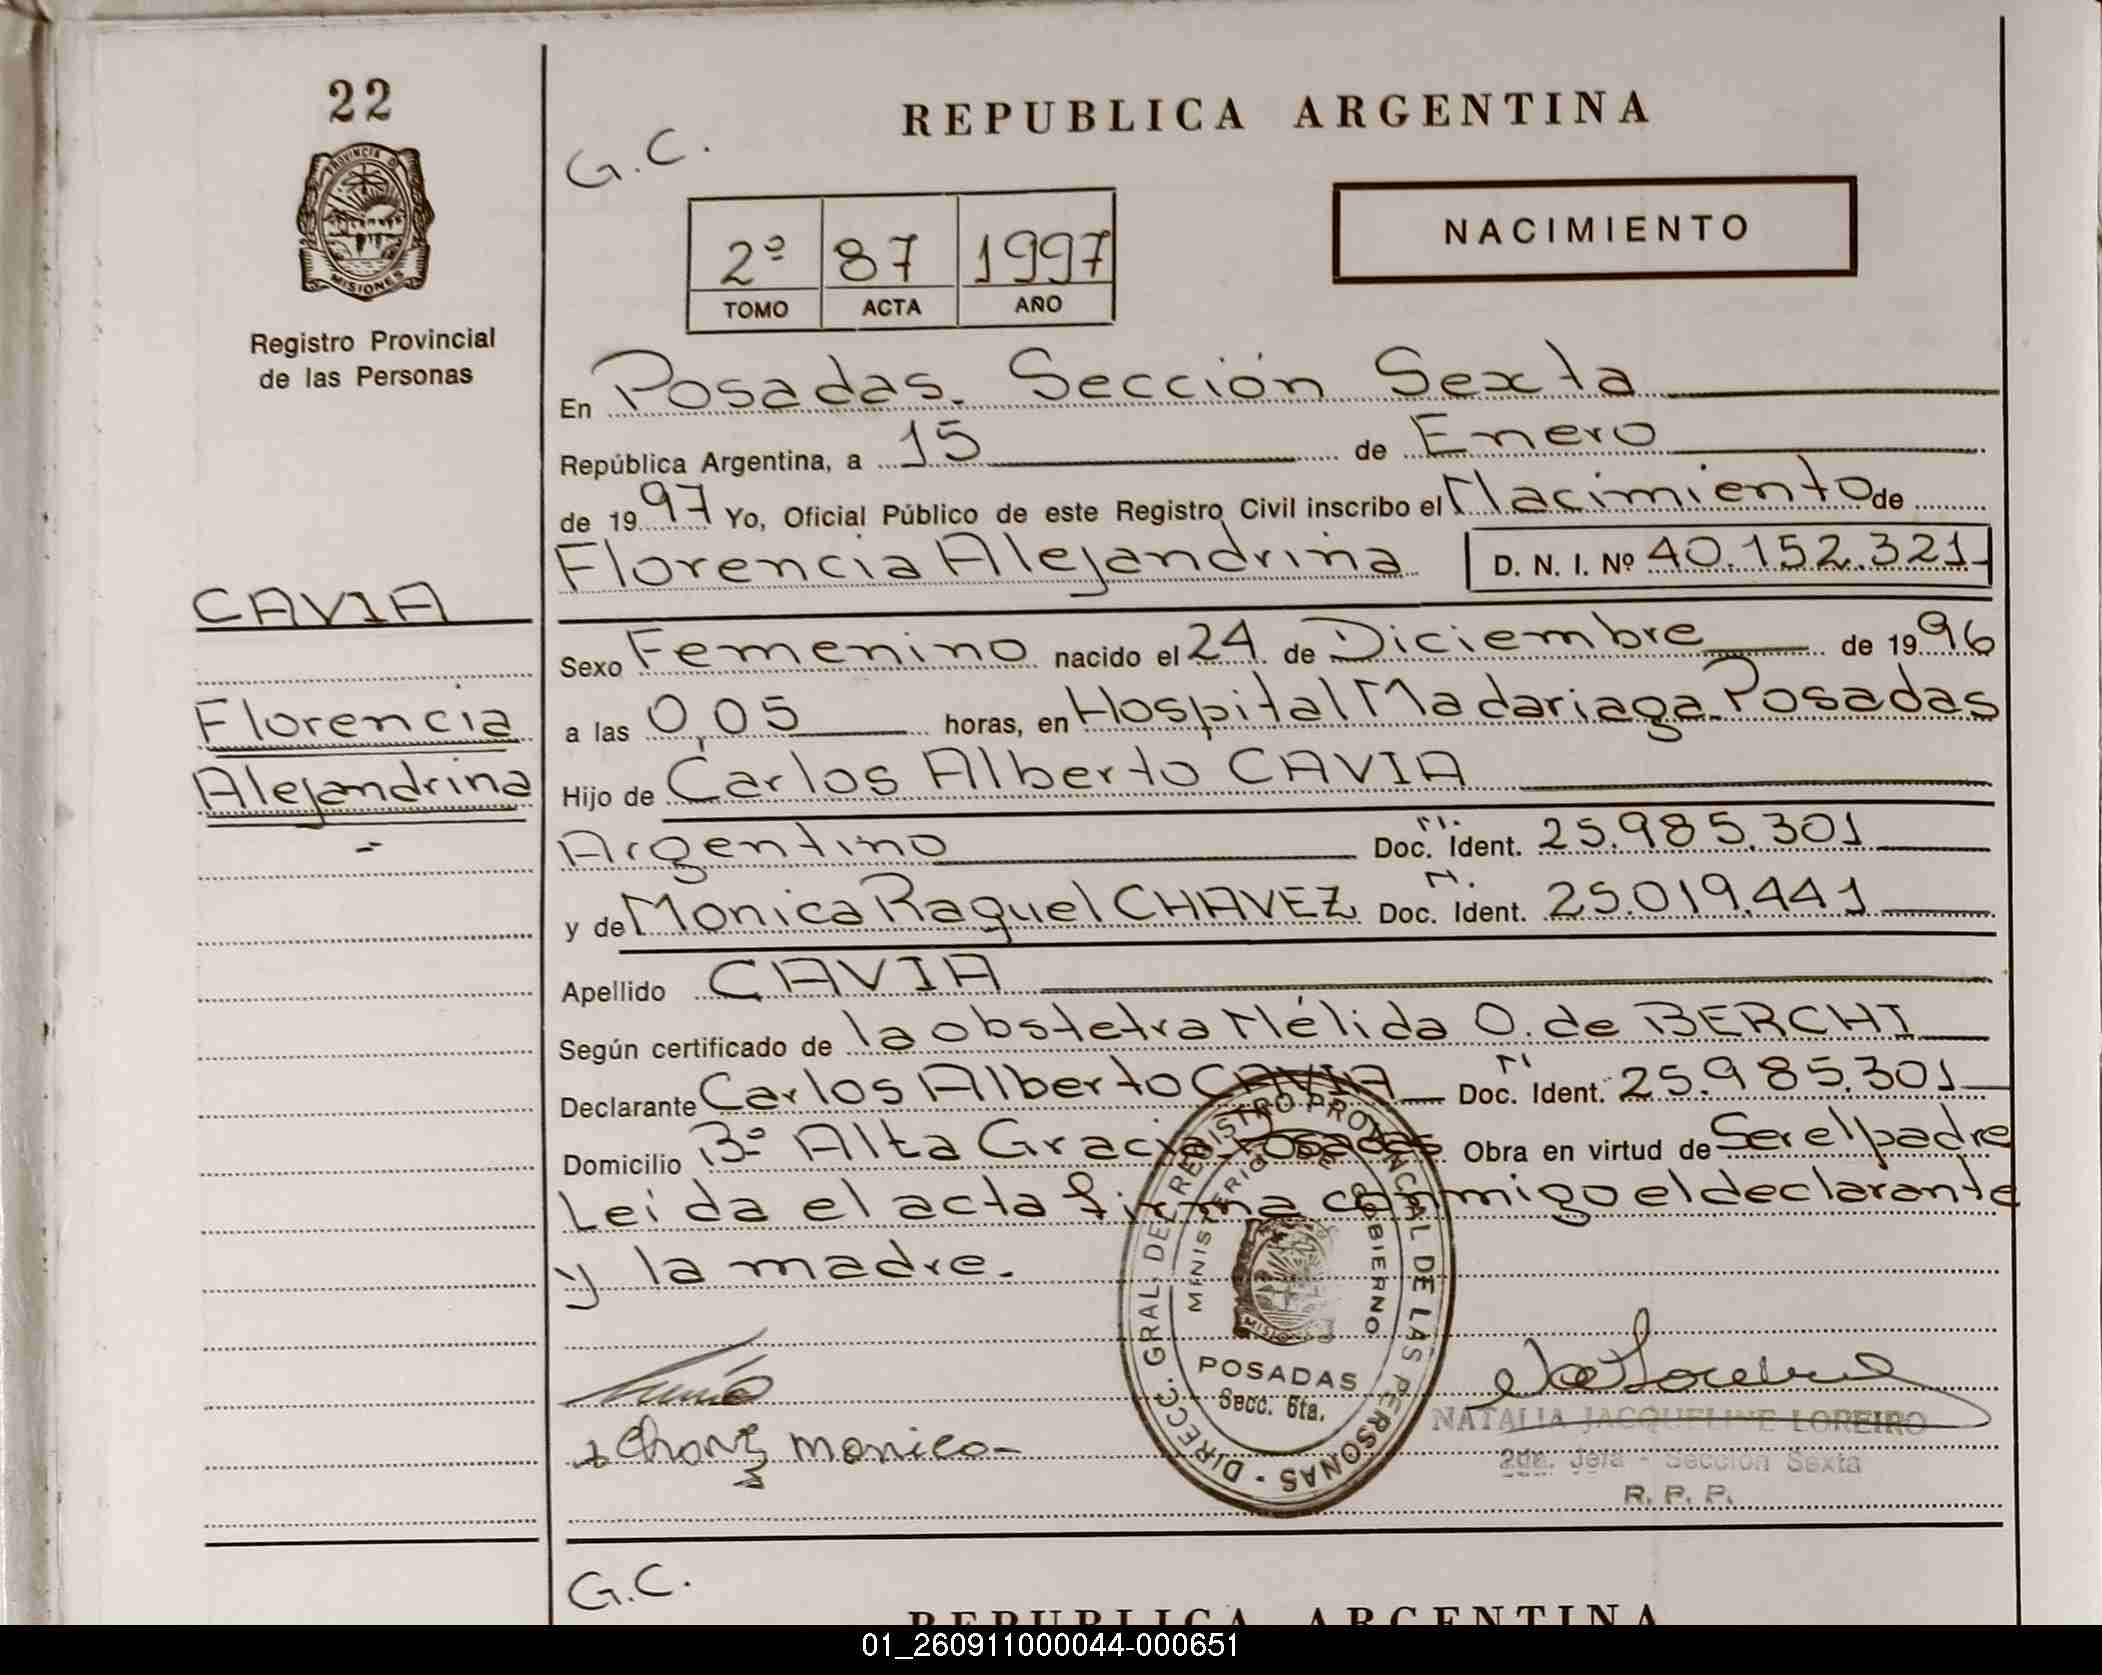 22
PROVINCIA D
MISIONES
Registro Provincial
de las Personas
CAVIA
Florencia
Alejandrina
G.C.
REPUBLICA ARGENTINA
NACIMIENTO
2º 87 1997
TOMO ACTA AÑO
En Posadas. Sección Sexta
República Argentina, a 15 de Enero
de 1997 Yo, Oficial Público de este Registro Civil inscribo el Nacimiento de
Florencia Alejandrina D. N. I. Nº 40.152.321
Sexo Femenino nacido el 24 de Diciembre de 1996
a las 0,05 horas, en Hospital Madariaga. Posadas
Hijo de Carlos Alberto CAVIA
Argentino Doc. N. Ident. 25.985.301
y de Monica Raquel CHAVEZ Doc. N. Ident. 25.019.441
Apellido CAVIA
Según certificado de la obstetra Nélida O. de BERCHI
Declarante Carlos Alberto CAVIA Doc. N Ident. 25.985.301
Domicilio Bº Alta Gracia. Posadas Obra en virtud de Ser el padre
Leída el acta firma conmigo el declarante
y la madre.
DIRECC. GRAL. DE REGISTRO PROVINCIAL DE LAS PERSONAS
MINISTERIO DE GOBIERNO
MISIONES
POSADAS
Secc. 6ta.
Chavez monica
NATALIA JACQUELINE LOREIRO
2da. Jefa - Sección Sexta
R. P. P.
G.C.
REPUBLICA ARGENTINA
01_260911000044-000651